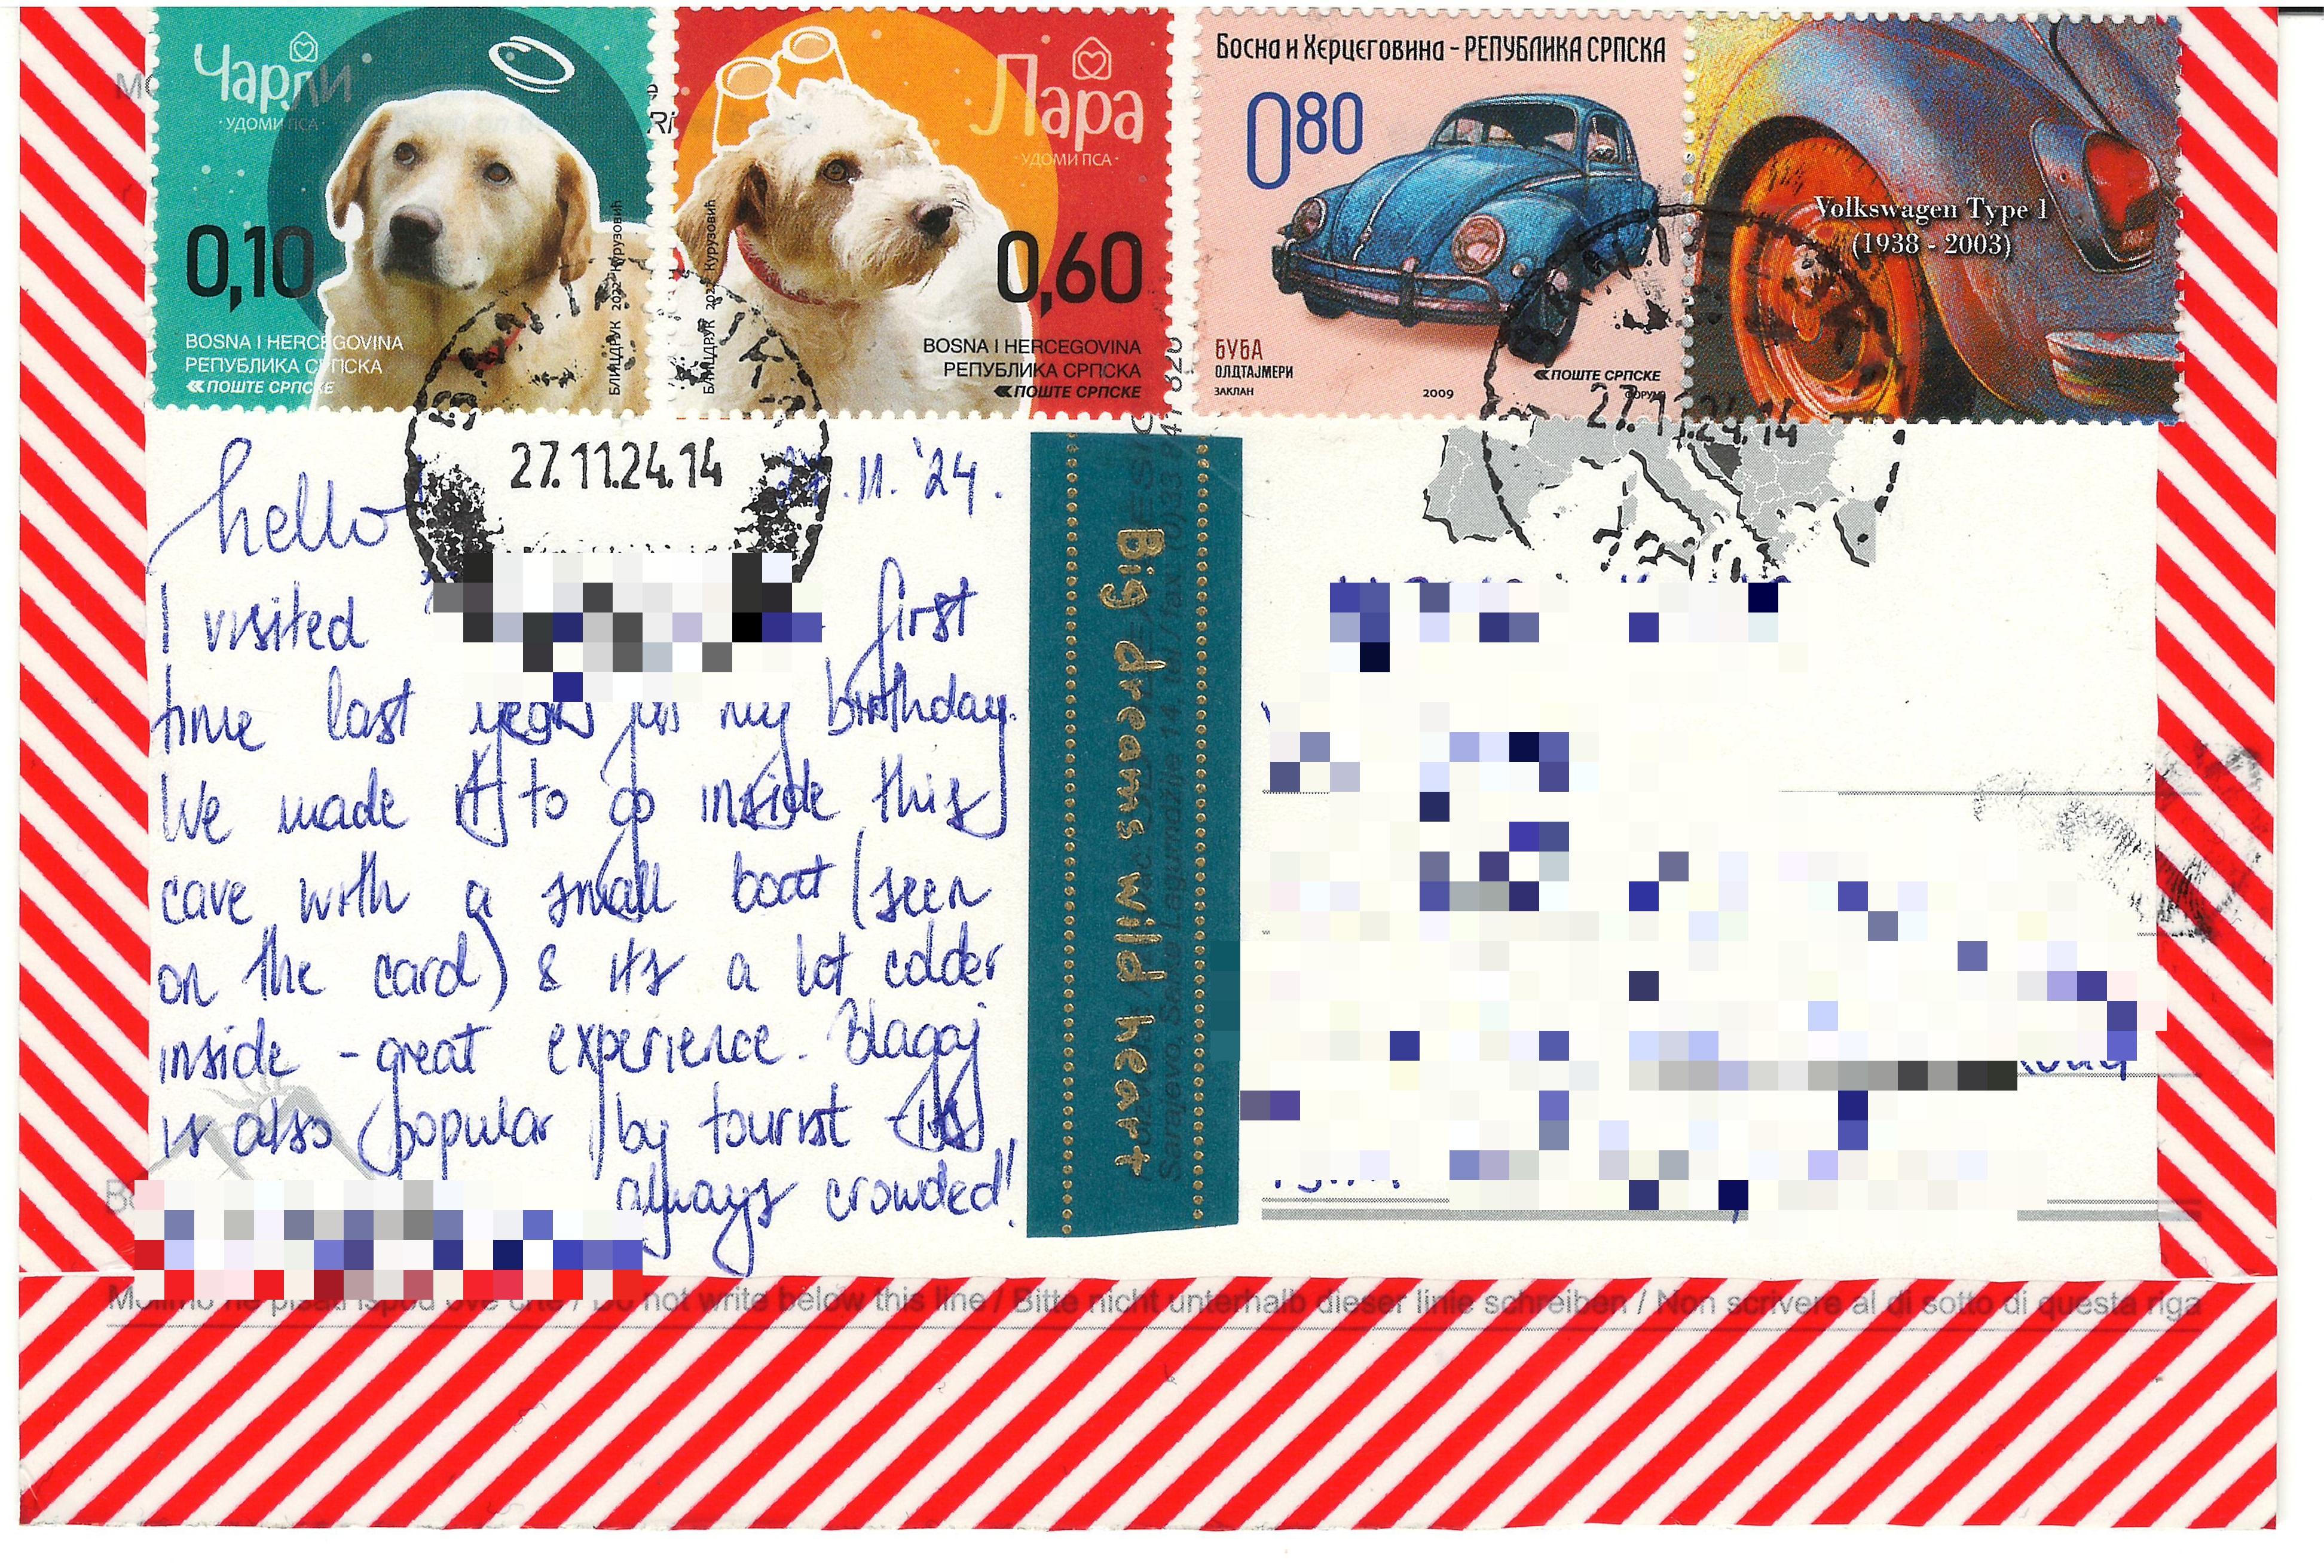 Чарли
·УДОМИ ПСА·
0,10
BOSNA I HERCEGOVINA
РЕПУБЛИКА СРПСКА
ПОШТЕ СРПСКЕ
БЛИЦДРУК 2022 Курузовић
Лара
·УДОМИ ПСА·
0,60
BOSNA I HERCEGOVINA
РЕПУБЛИКА СРПСКА
ПОШТЕ СРПСКЕ
БЛИЦДРУК 2022 Курузовић
Босна и Херцеговина - РЕПУБЛИКА СРПСКА
0,80
БУБА
ОЛДТАЈМЕРИ
ЗАКЛАН
2009
ПОШТЕ СРПСКЕ
ФОРУМ
Volkswagen Type 1
(1938 - 2003)
27.11.24.14
27.11.24.14
.11.'24.
hello
I visited first
time last year for my birthday.
We made it to go inside this
cave with a small boat (seen
on the card) & its a lot colder
inside - great experience. Blagaj
is also popular by tourist - its
always crowded!
Big dreams wild heart
Molimo ne pisati ispod ove crte / Do not write below this line / Bitte nicht unterhalb dieser linie schreiben / Non scrivere al di sotto di questa riga